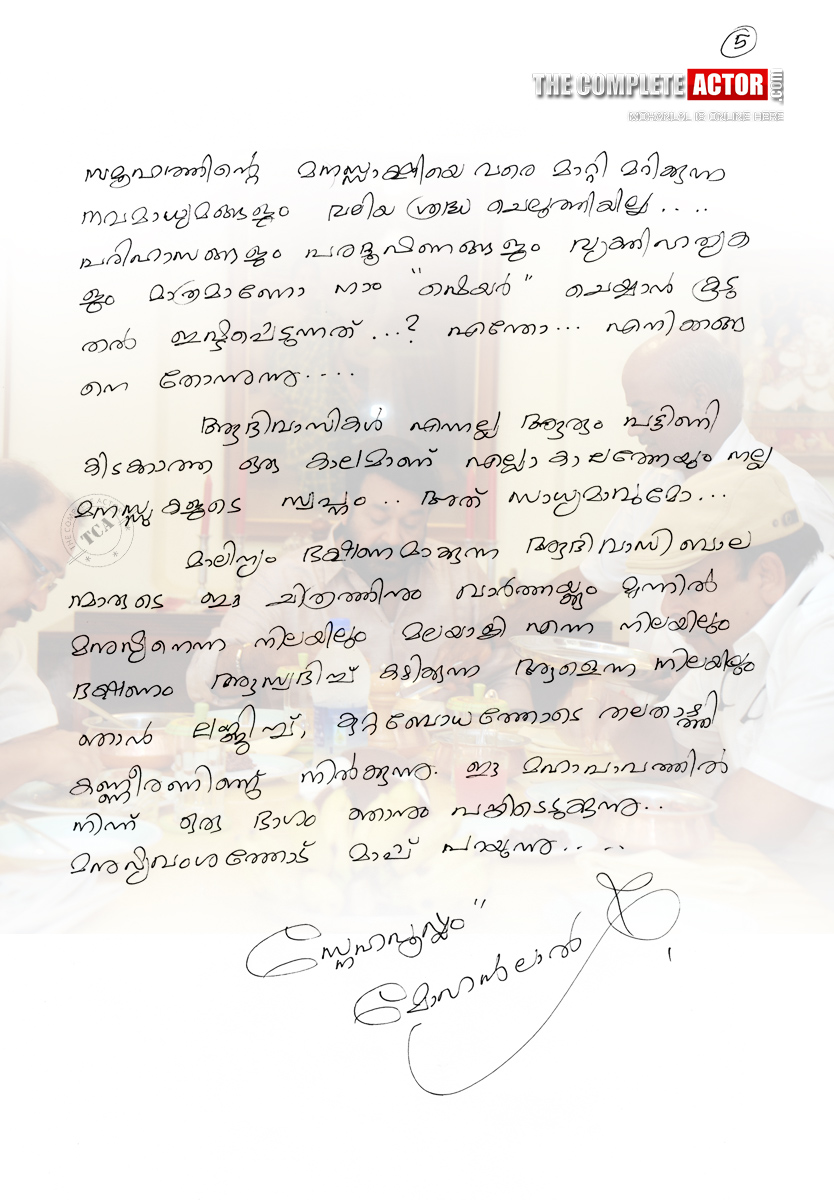 5
THE COMPLETE ACTOR .com
MOHANLAL IS ONLINE HERE
സമൂഹത്തിന്റെ മനസ്സാക്ഷിയെ വരെ മാറ്റി മറിക്കുന്ന
നവമാധ്യമങ്ങളും വലിയ ശ്രദ്ധ ചെലുത്തിയില്ല....
പരിഹാസങ്ങളും പരദൂഷണങ്ങളും വ്യക്തിഹത്യക
ളും മാത്രമാണോ നാം "ഷെയർ" ചെയ്യാൻ കൂടു
തൽ ഇഷ്ടപ്പെടുന്നത്...? എന്തോ... എനിക്കങ്ങ
നെ തോന്നുന്നു....
ആദിവാസികൾ എന്നല്ല ആരും പട്ടിണി
കിടക്കാത്ത ഒരു കാലമാണ് എല്ലാകാലത്തേയും നല്ല
മനസ്സുകളുടെ സ്വപ്നം.. അത് സാധ്യമാവുമോ...
THE COMPLETE ACTOR TCA
മാലിന്യം ഭക്ഷണമാക്കുന്ന ആദിവാസി ബാല
ന്മാരുടെ ഈ ചിത്രത്തിനും വാർത്തയ്ക്കും മുന്നിൽ
മനുഷ്യനെന്ന നിലയിലും മലയാളി എന്ന നിലയിലും
ഭക്ഷണം ആസ്വദിച്ച് കഴിക്കുന്ന ആളെന്ന നിലയിലും
ഞാൻ ലജ്ജിച്ച്, കുറ്റബോധത്തോടെ തലതാഴ്ത്തി
കണ്ണീരണിഞ്ഞു നിൽക്കുന്നു. ഈ മഹാപാപത്തിൽ
നിന്ന് ഒരു ഭാഗം ഞാനും പങ്കിടെടുക്കുന്നു..
മനുഷ്യവംശത്തോട് മാപ്പ് പറയുന്നു....
സ്നേഹപൂർവ്വം"
മോഹൻലാൽ